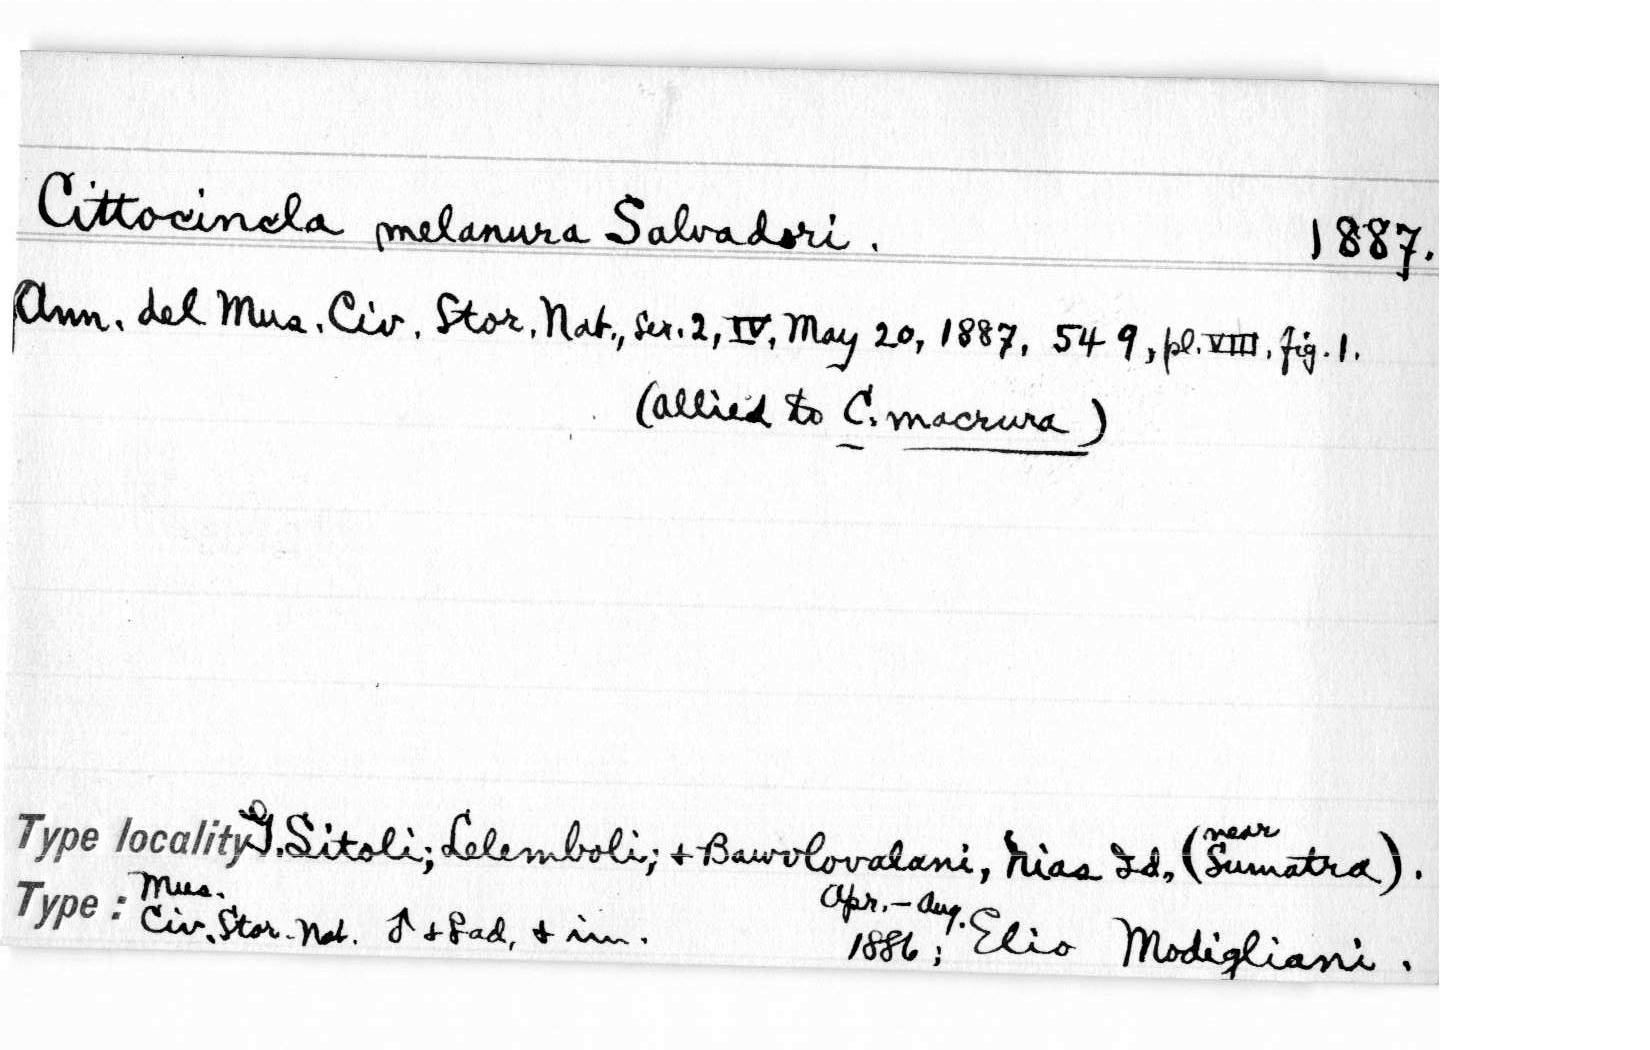 Cittocincla melanura Salvadori. 1887.
Ann. del Mus. Civ. Stor. Nat., Ser. 2, IV, May 20, 1887, 549, pl. VIII, fig. 1.
(allied to C. macrura)
Type locality G. Sitoli; Lelemboli; + Bawolovalani, Nias Id, (near Sumatra).
Type: Mus. Civ. Stor. Nat. ♂ + ♀ ad, + im. Apr. - Aug. 1886; Elio Modigliani.